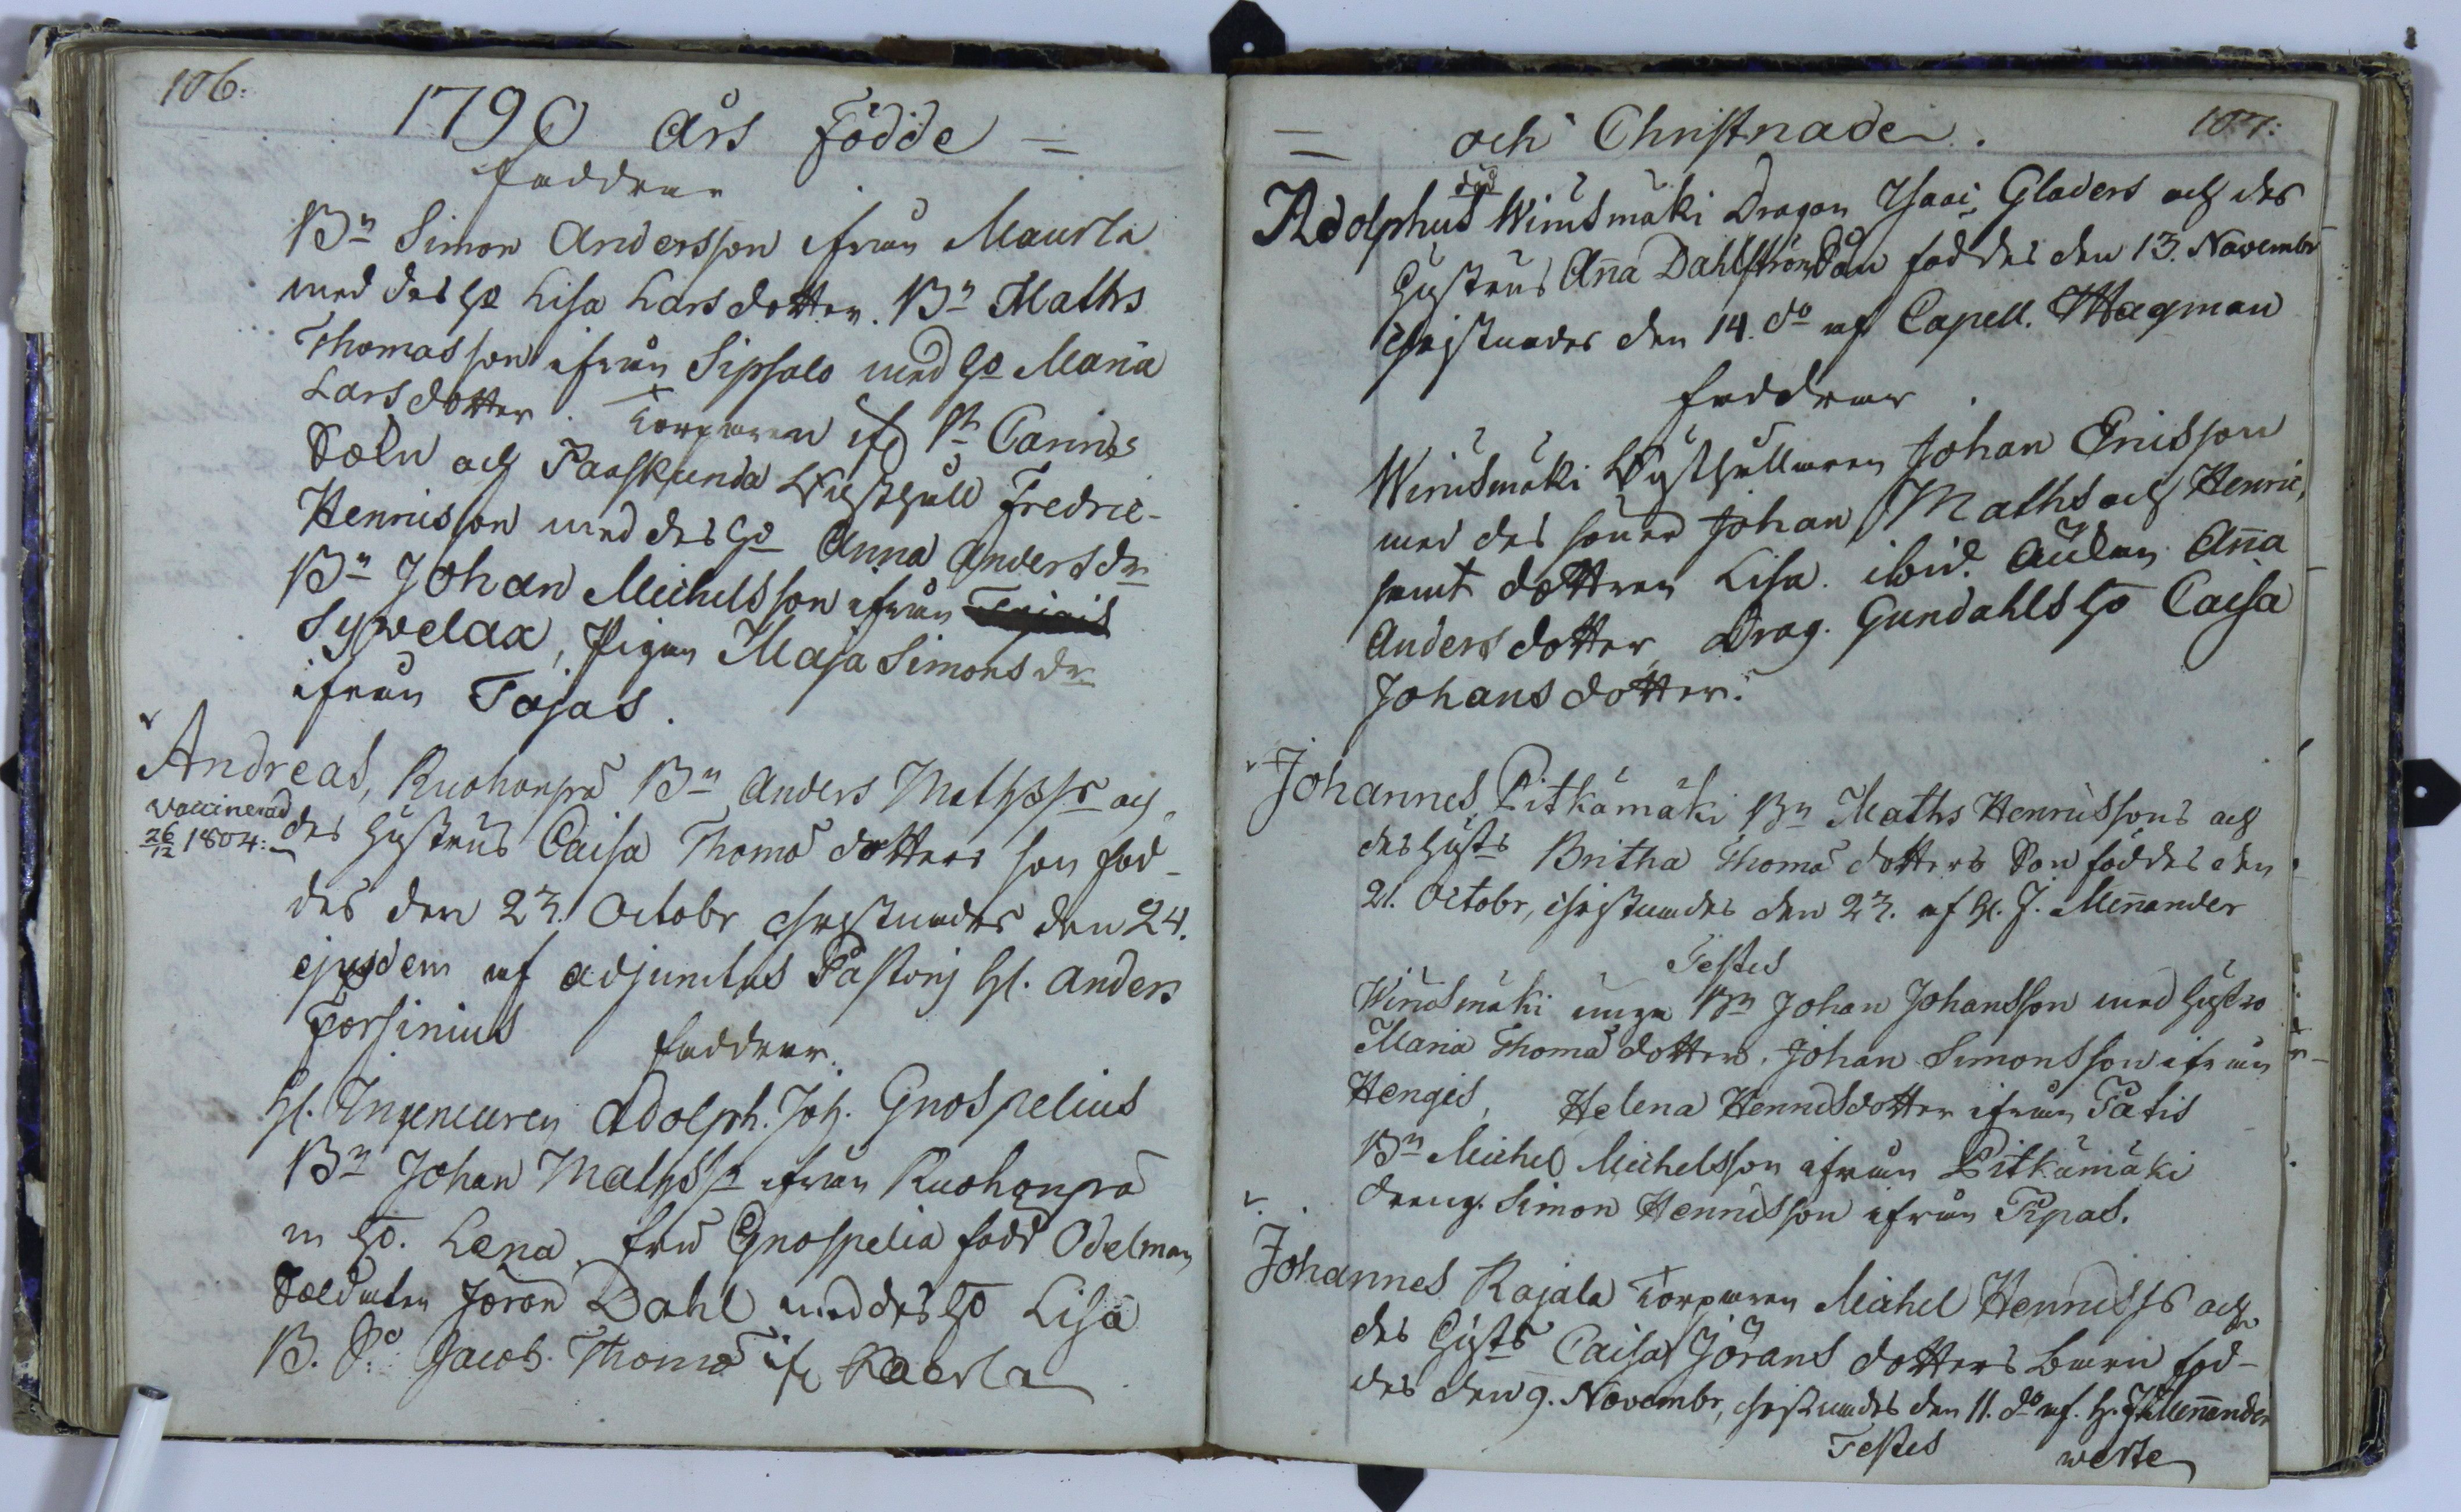 106:
1790 års Födde =
faddrar
Bn Simon Andersson ifrån Maurla
med des ho Lisa Larsdotter. Bn Maths
Thomasson ifrån Sipsalo med ho Maria
Larsdotter. Torparen if. Pr Carins
Sæln och Paaskunda Lysthåll Fredric
Henricsson med des ho Anna Andersdr
Bn Johan Michelsson ifrån
Sywelax, Pigan Maja Simonsdr
ifrån Tojas.
Andreas, Ruohonpä Bn Anders Mathss. och
Vaccinerad 26/12 1804:
des hustrus Caisa Thomædotters son föd-
des den 23. Octobr christnades den 24.
ejusdem af adjunctus Pastoris hl. Anders
Forsinius
faddrar.
hl. Ingeneuren Adolph. Joh. Gnospelius
Bn Johan Mathss. ifrån Ruohonpä
m ho. Lena, fru Gnospelia född Odelman
Soldaten Jöran Dahl med des ho Lisa
B. So. Jacob Thomæ if. Kaerla
107:
= och Christnade.
död
Adolphus Wirusmäki Dragon Isaac Gladers och des
hustrus Aña Dahlström Son föddes den 13. Novembr
christnades den 14. do af Capell. Hagman
faddrar
Wirusmäki Lysthållaren Johan Ericsson
med des söner Johan, Maths och Henric,
samt dottren Lisa ibid. Änkan Aña
Andersdotter, Drag. Gundahls ho Caisa
Johansdotter.
Johannes, Pitkämäki Bn Maths Henricssons och
des husts Britha Thomædotters Son föddes den
21. Octobr, christnades den 23. af hl. J. Meñander
Testes
Wirusmäki unga Bn Johan Johansson med hustro
Maria Thomædotter. Johan Simonsson ifrån
Hengis, Helena Henricsdotter ifrån Patis
Bn Michel Michelsson ifrån Pitkämäki
dreng. Simon Henricsson ifrån Pipas.
Johannes Rajala Torparen Michel Henricss. och
des husts Caisa Jöransdotters barn föd-
des den 9. Novembr, christnades den 11. do af. h. J. Meñander
Testes werte